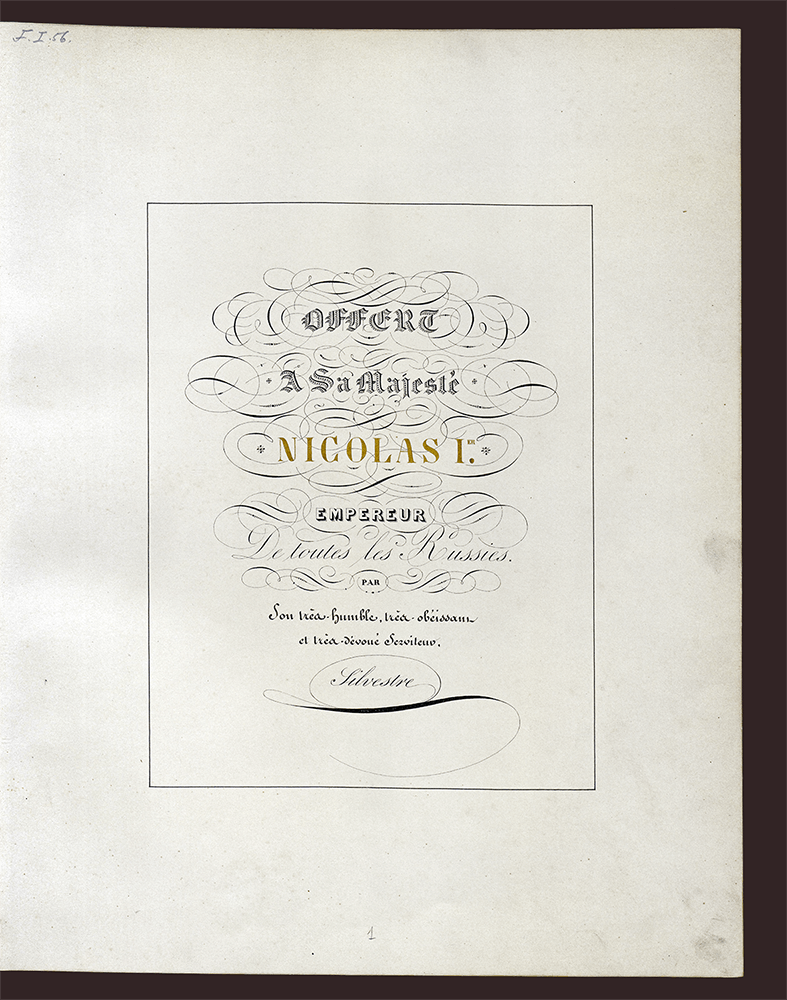 F.I.56.
OFFERT
A Sa Majesté
NICOLAS I.ER
EMPEREUR
De toutes les Russies.
PAR
Son très-humble, très-obéissant
et très-dévoué Serviteur.
Silvestre
1